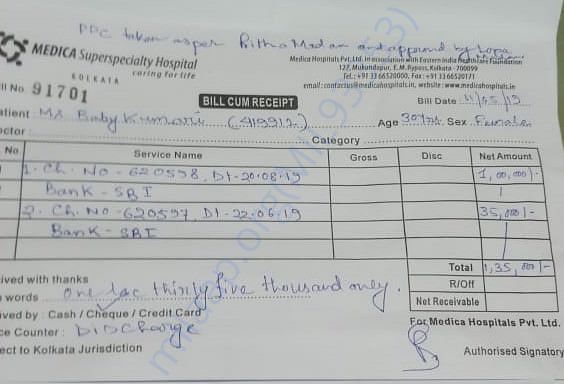 PDC taken as per Pritha Madam and approved by Lopa
MEDICA Superspecialty Hospital
KOLKATA caring for life
Medica Hospitals Pvt. Ltd. in association with Eastern India Healthcare Foundation
127, Mukundapur, E.M. Bypass, Kolkata - 700099
Tel.: +91 33 66520000, Fax: +91 33 66520171
email: contactus@medicahospitals.in, website: www.medicahospitals.in
ill No. 91701
BILL CUM RECEIPT
Bill Date 11/05/19
atient Ms Baby Kumari (419912) Age 30 Yrs Sex Female
ctor Category
No. Service Name Gross Disc Net Amount
1. Ch. No - 620598, Dt - 20-08-19 1,00,000/-
Bank - SBI
2. Ch. No - 620597, Dt - 22-06-19 35,000/-
Bank - SBI
Total 1,35,000/-
R/Off
Net Receivable
ived with thanks
words One lac thirty five thousand only.
ived by : Cash / Cheque / Credit Card
ce Counter : DISCharge
ect to Kolkata Jurisdiction
For Medica Hospitals Pvt. Ltd.
Authorised Signatory